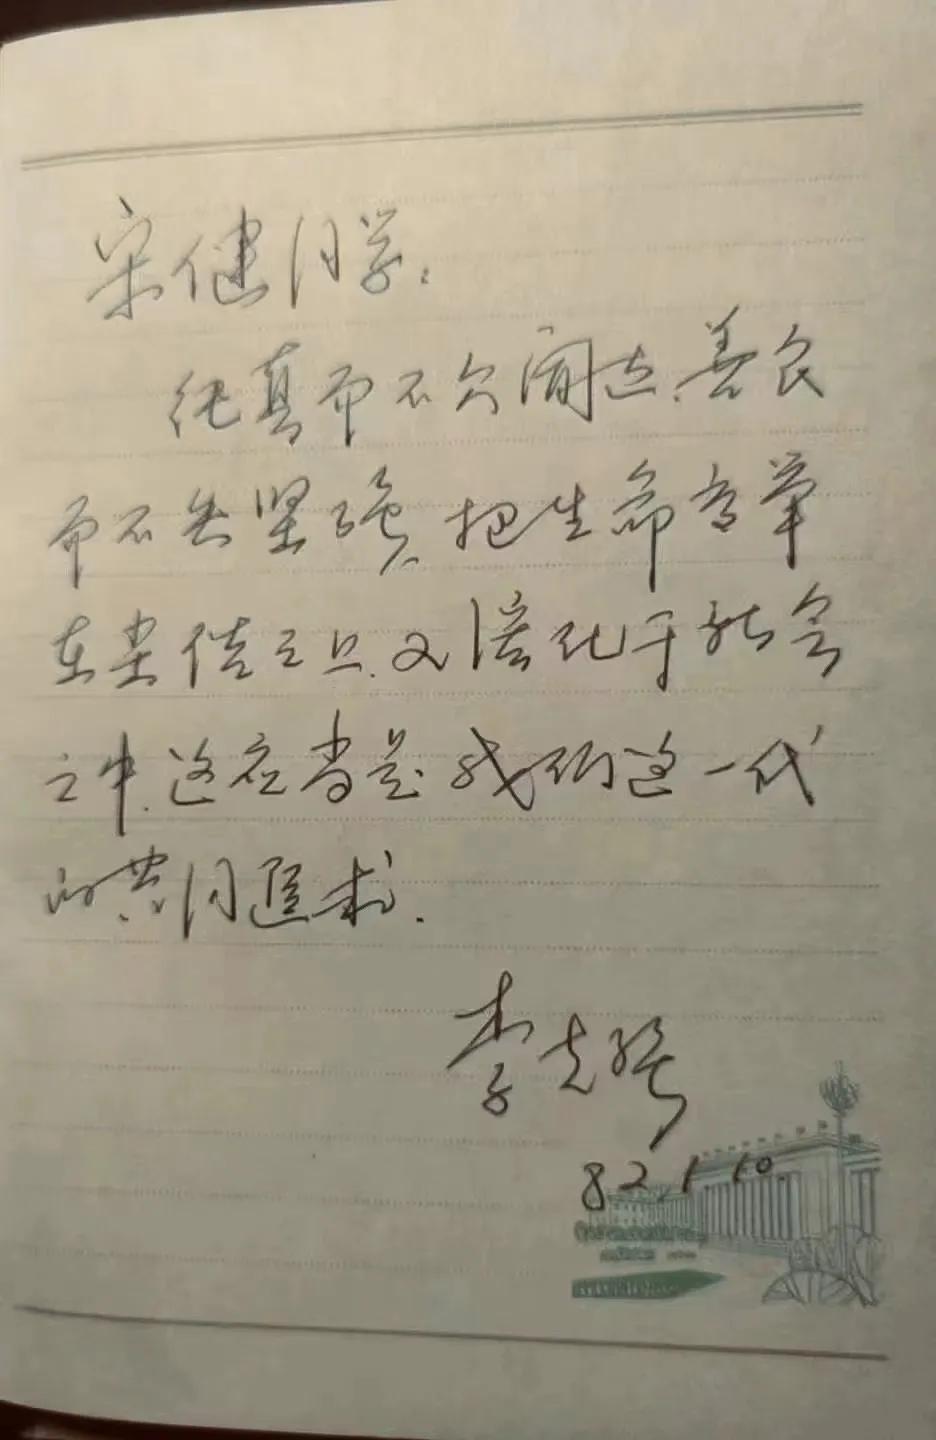 宋健同学：
纯真而不欠阔达，善良
而不失坚强，把生命高举
在尘俗之上，又溶化于社会
之中，这应当是我们这一代
的共同追求．
李克强
82.1.10.